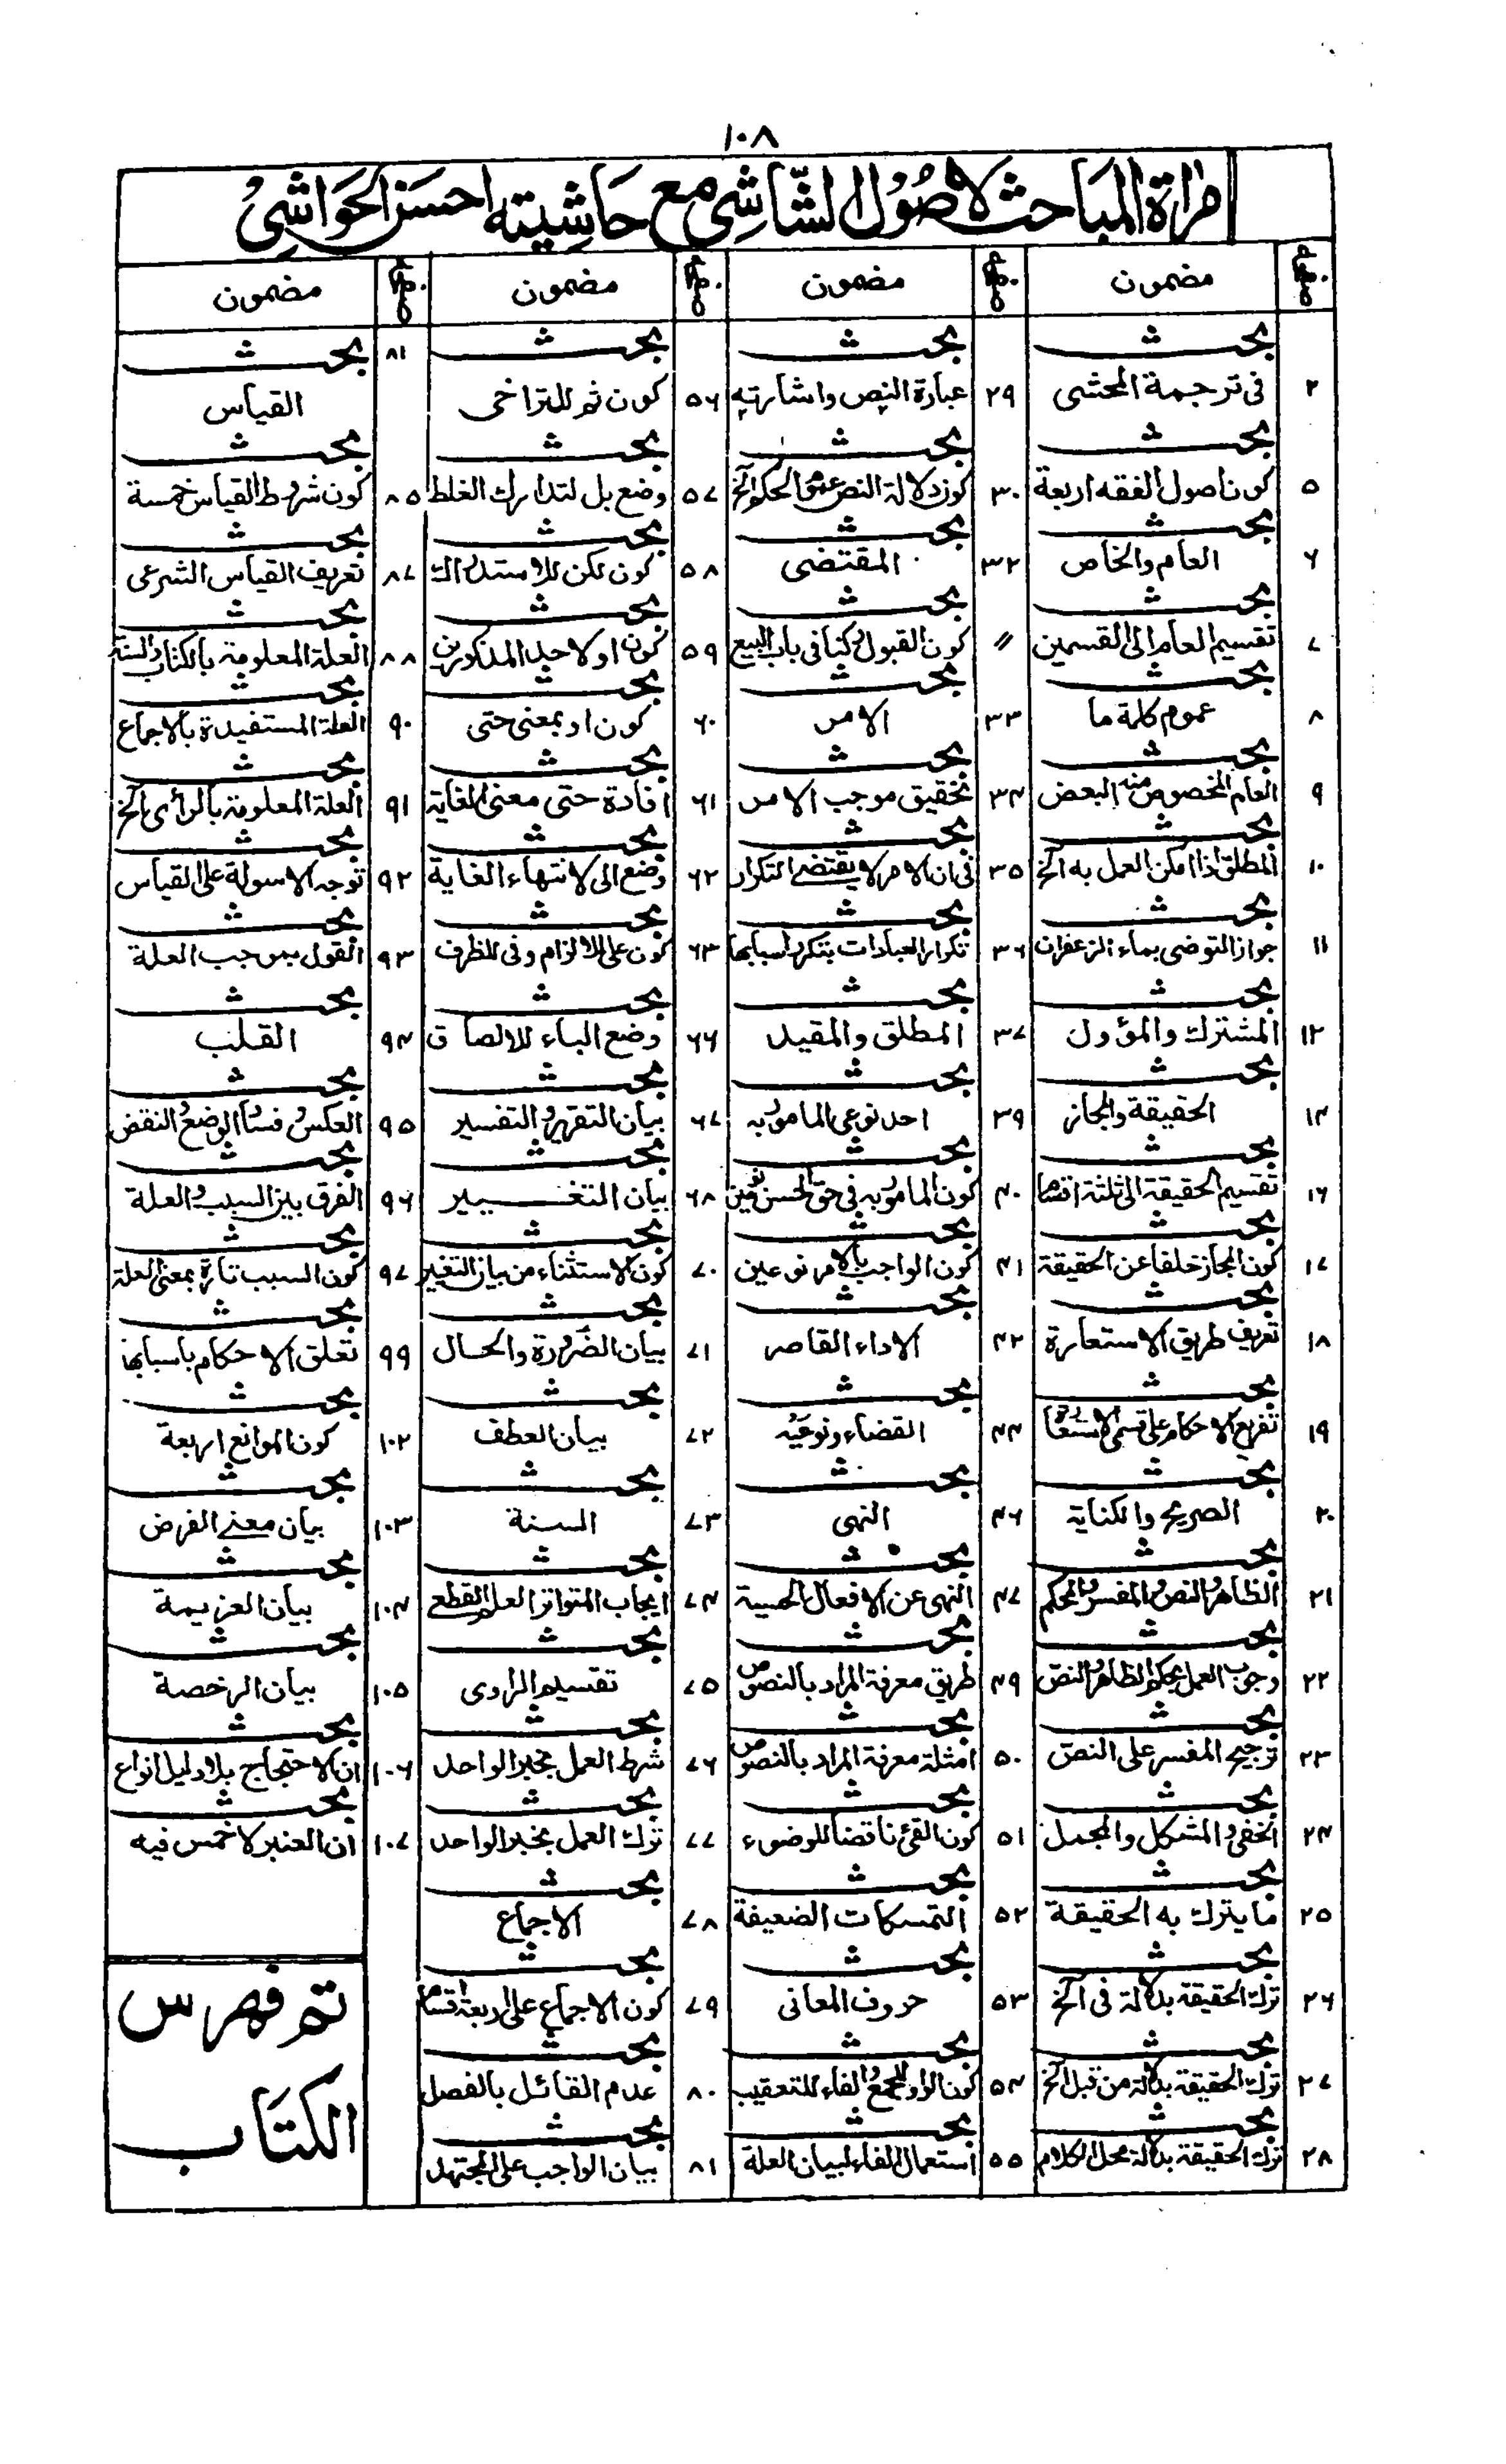 ١٠٨
مرأة المباحث لاصول الشاشى مع حاشيته احسن الحواشى
مضمون
بحث
٢ فى ترجمة المحشى
بحث
٥ كون اصول الفقه اربعة
بحث
٦ العام والخاص
بحث
٧ تقسيم العام الى القسمين
بحث
٨ عموم كلمة ما
بحث
٩ العام المخصوص منه البعض
بحث
١٠ المطلق اذا امكن العمل به الخ
بحث
١١ جواز التوضى بماء الزعفران
بحث
١٢ المشترك والمؤول
بحث
١٤ الحقيقة والمجاز
بحث
١٦ تقسيم الحقيقة الى ثلثة اقسام
بحث
١٧ كون المجاز خلفا عن الحقيقة
بحث
١٨ تعريف طريق الاستعارة
بحث
١٩ تفريع الاحكام على قسمى الاستعارة
بحث
٢٠ الصريح والكناية
بحث
٢١ الظاهر والنص والمفسر والمحكم
بحث
٢٢ وجوب العمل بحكم الظاهر والنص
بحث
٢٣ ترجيح المفسر على النص
بحث
٢٤ الخفى والمشكل والمجمل
بحث
٢٥ ما يترك به الحقيقة
بحث
٢٦ ترك الحقيقة بدلالة فى الخ
بحث
٢٧ ترك الحقيقة بدلالة من قبل الخ
بحث
٢٨ ترك الحقيقة بدلالة محل الكلام
مضمون
بحث
٢٩ عبارة النص واشارته
بحث
٣٠ كون دلالة النص عموم الحكم الخ
بحث
٣٢ المقتضى
بحث
〃 كون القبول ركنا فى باب البيع
بحث
٣٣ الامر
بحث
٣٤ تحقيق موجب الامر
بحث
٣٥ فى ان الامر لا يقتضى التكرار
بحث
٣٦ تكرار العبادات بتكرر اسبابها
بحث
٣٧ المطلق والمقيد
بحث
٣٩ احد نوعى المامور به
بحث
٤٠ كون المامور به فى حق الحسن نوعين
بحث
٤١ كون الواجب بالامر نوعين
بحث
٤٢ الاداء القاصر
بحث
٤٤ القضاء ونوعيه
بحث
٤٦ النهى
بحث
٤٧ النهى عن الافعال الحسية
بحث
٤٩ طريق معرفة المراد بالنصوص
بحث
٥٠ امثلة معرفة المراد بالنصوص
بحث
٥١ كون القئ ناقضا للوضوء
بحث
٥٢ التمسكات الضعيفة
بحث
٥٣ حروف المعانى
بحث
٥٤ كون الواو للجمع والفاء للتعقيب
بحث
٥٥ استعمال الفاء لبيان العلة
مضمون
بحث
٥٦ كون ثم للتراخى
بحث
٥٧ وضع بل لتدارك الغلط
بحث
٥٨ كون لكن للاستدراك
بحث
٥٩ كون او لاحد المذكورين
بحث
٦٠ كون او بمعنى حتى
بحث
٦١ افادة حتى معنى الغاية
بحث
٦٢ وضع الى لانتهاء الغاية
بحث
٦٣ كون على للالزام وفى للظرف
بحث
٦٦ وضع الباء للالصاق
بحث
٦٧ بيان التقرير والتفسير
بحث
٦٨ بيان التغيير
بحث
٧٠ كون الاستثناء من بيان التغيير
بحث
٧١ بيان الضرورة والحال
بحث
٧٢ بيان العطف
بحث
٧٣ السنة
بحث
٧٤ ايجاب المتواتر العلم القطعى
بحث
٧٥ تقسيم الراوى
بحث
٧٦ شرط العمل بخبر الواحد
بحث
٧٧ ترك العمل بخبر الواحد
بحث
٧٨ الاجماع
بحث
٧٩ كون الاجماع على اربعة اقسام
بحث
٨٠ عدم القائل بالفصل
بحث
٨١ بيان الواجب على المجتهد
مضمون
٨١ بحث
القياس
بحث
٨٥ كون شروط القياس خمسة
بحث
٨٧ تعريف القياس الشرعى
بحث
٨٨ العلة المعلومة بالكتاب والسنة
بحث
٩٠ العلة المستفيدة بالاجماع
بحث
٩١ العلة المعلومة بالرأى الخ
بحث
٩٢ توجه الاسولة على القياس
بحث
٩٣ القول بموجب العلة
بحث
٩٤ القلب
بحث
٩٥ العكس وفساد الوضع والنقض
بحث
٩٦ الفرق بين السبب والعلة
بحث
٩٧ كون السبب تارة بمعنى العلة
بحث
٩٩ تعلق الاحكام باسبابها
بحث
١٠٢ كون الموانع اربعة
بحث
١٠٣ بيان معنى الفرض
بحث
١٠٤ بيان العزيمة
بحث
١٠٥ بيان الرخصة
بحث
١٠٦ ان الاحتجاج بلا دليل انواع
بحث
١٠٧ ان العنبر لا خمس فيه
تم فهرس
الكتاب